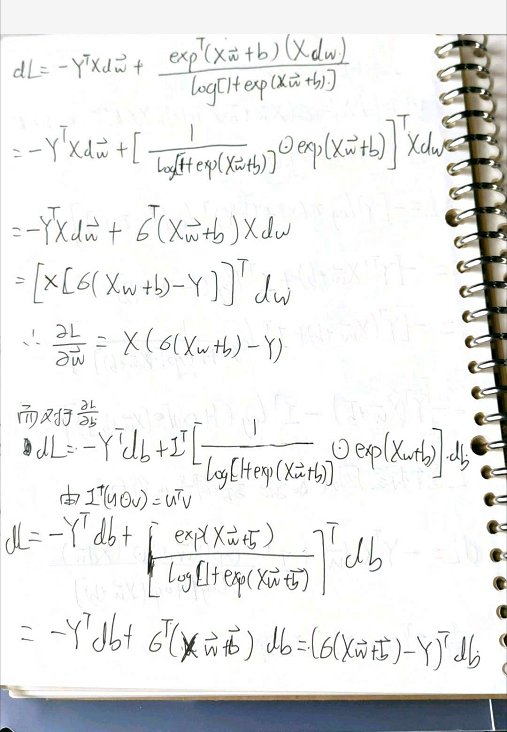 dL = -YᵀXdw⃗ + expᵀ(Xw⃗+b)(Xdw) / log[1+exp(Xw⃗+b)]
= -YᵀXdw⃗ + [1 / log[1+exp(Xw⃗+b)] ⊙ exp(Xw⃗+b)]ᵀ Xdw
= -YᵀXdw⃗ + 6ᵀ(Xw⃗+b)Xdw
= [X[6(Xw+b)-Y]]ᵀ dw
∴ ∂L/∂w⃗ = X(6(Xw+b)-Y)
而对于 ∂L/∂b
dL = -Yᵀdb + Iᵀ[1 / log[1+exp(Xw⃗+b)] ⊙ exp(Xw+b)]·db
由 Iᵀ(u⊙v) = uᵀv
dL = -Yᵀdb + [exp(Xw⃗+b⃗) / log[1+exp(Xw⃗+b⃗)]]ᵀ db
= -Yᵀdb + 6ᵀ(Xw⃗+b⃗) db = (6(Xw⃗+b⃗)-Y)ᵀ db